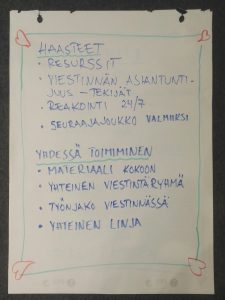 HAASTEET
• RESURSSIT
• VIESTINNÄN ASIANTUNTI-
JUUS – TEKIJÄT
• REAGOINTI 24/7
• SEURAAJAJOUKKO VALMIIKSI
YHDESSÄ TOIMIMINEN
• MATERIAALI KOKOON
• YHTEINEN VIESTINTÄRYHMÄ
• TYÖNJAKO VIESTINNÄSSÄ
• YHTEINEN LINJA